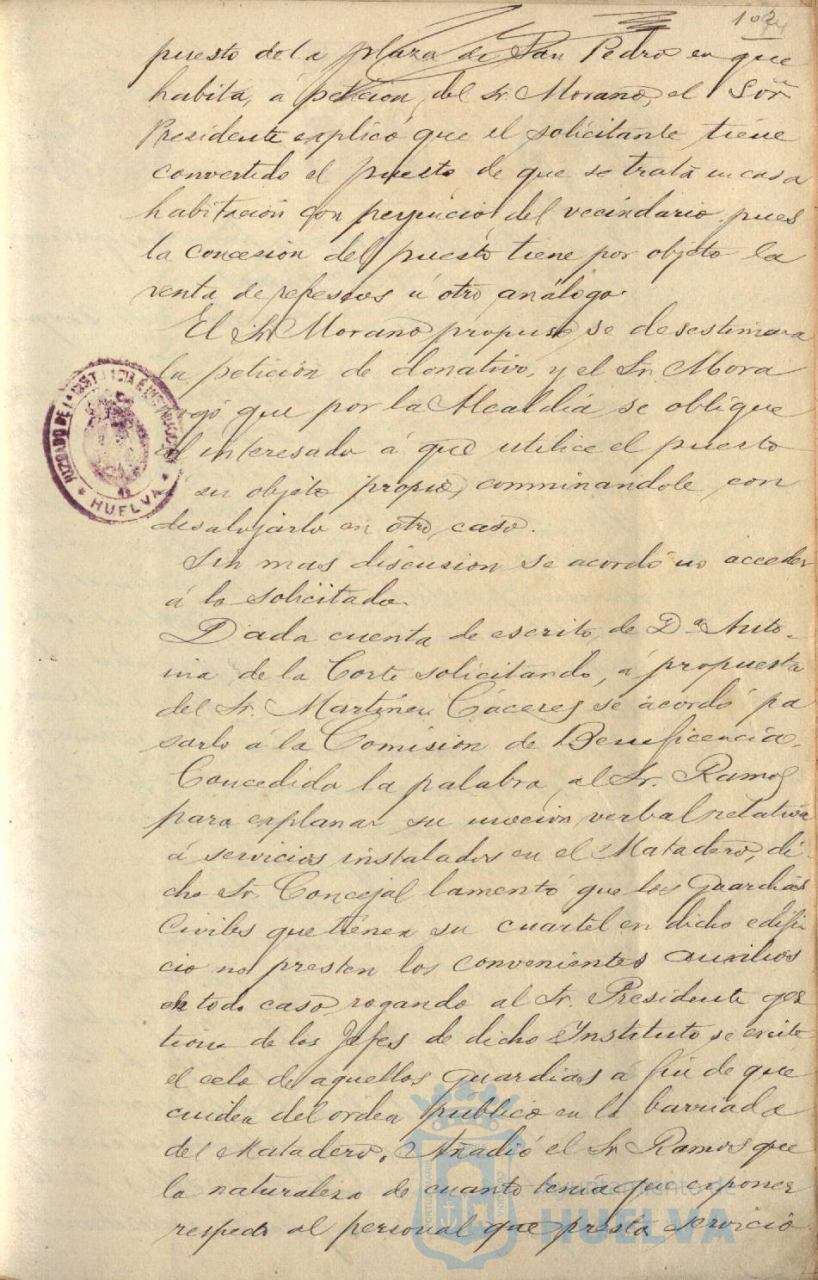 puesto de la plaza de San Pedro en que
habita, á petición, del Sr. Morano, el Sor
Presidente explicó que el solicitante tiene
convertido el puesto de que se trata en casa
habitación con perjuicio del vecindario, pues
la concesion del puesto tiene por objeto la
venta de refrescos ú otro, análogo.
El Sr. Morano propuso, se desestimara
la petición de donativo, y el Sr. Mora
rogó que por la Alcaldía, se oblique
al interesado á que utilice el puesto
su objeto propio, conminandole con
desalojarlo en otro caso.
Sin mas discusion se acordó no acceder
á lo solicitado.
Dada cuenta de escrito, de Dª Anto-
nia de la Corte solicitando, á propuesta
del Sr. Martínez Cáceres se acordó pa
sarlo á la Comision de Beneficencia.
Concedida la palabra, al Sr. Ramos
para explanar su mocion verbal relativa
á servicios instalados en el Matadero, di-
cho Sr. Concejal lamentó que los guardias
Civiles que tienen su cuartel en dicho edifi-
cio no presten los convenientes auxilios
en todo caso, rogando al Sr. Presidente ges
tione de los Jefes de dicho Instituto, se excite
el celo de aquellos guardias á fin de que
cuiden del orden publico en la barriada
del Matadero. Anadió el Sr. Ramos que
la naturaleza de cuanto tenia que exponer
respecto al personal que presta servicio
JUZGADO DE 1ª INSTANCIA É INSTRUCCION
* HUELVA *
Ayuntamiento de
HUELVA